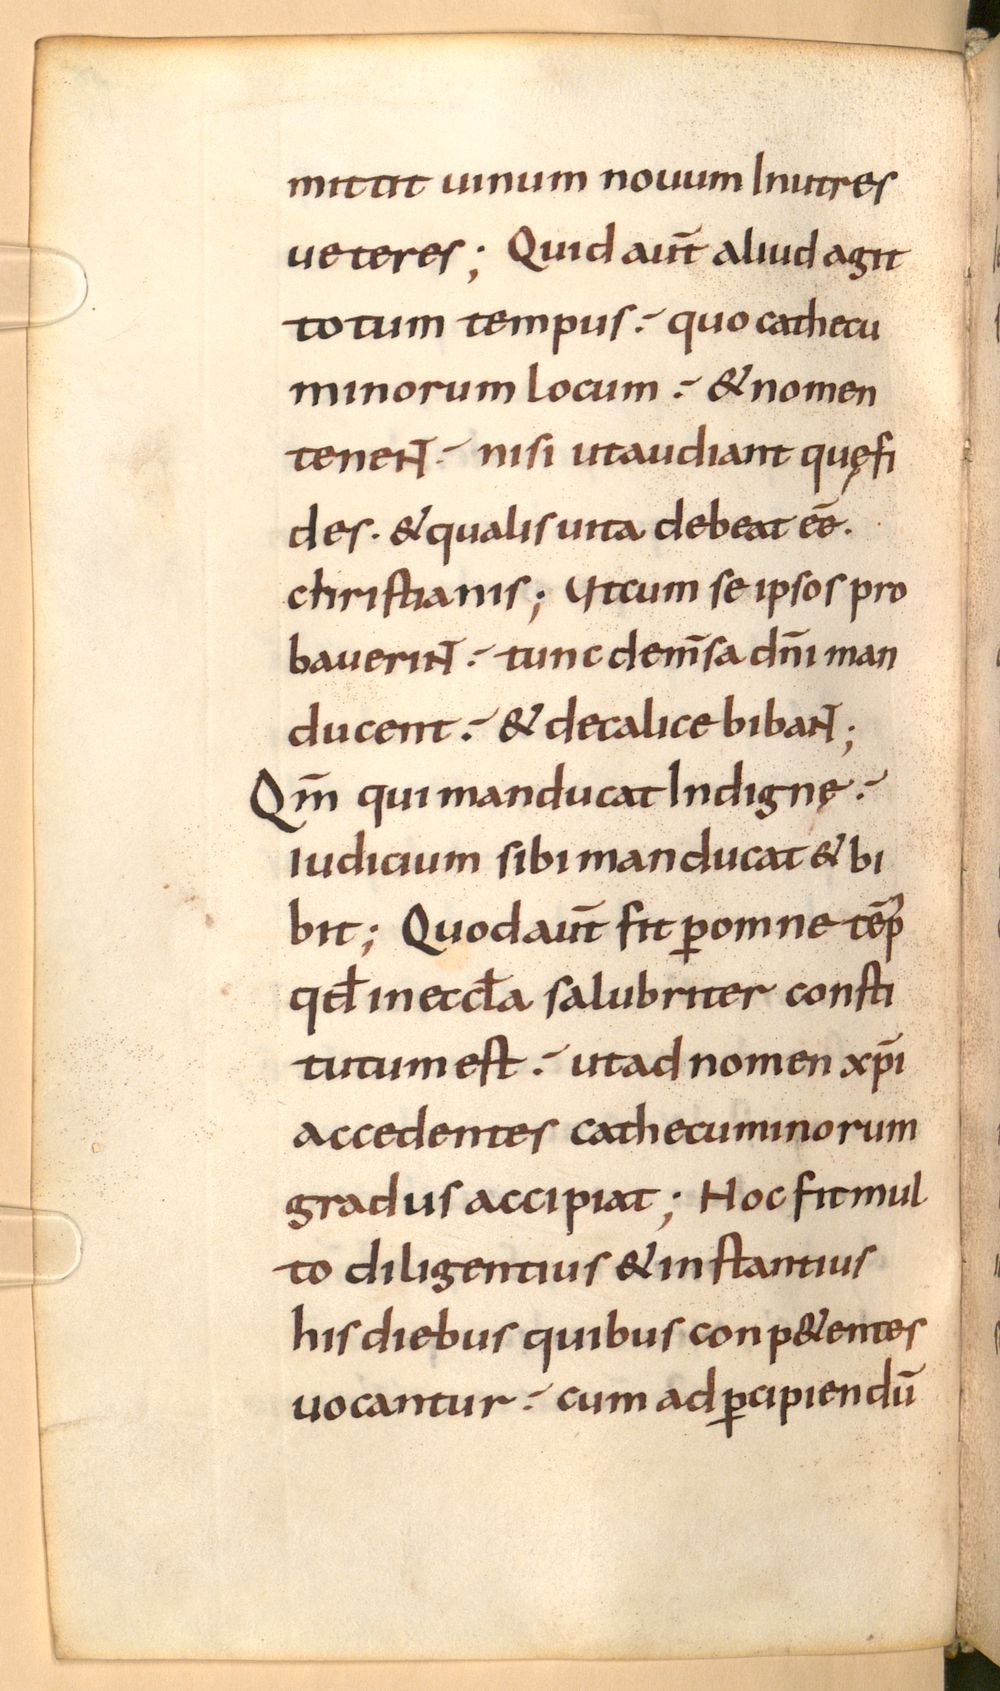 mittit uinum nouum Inutres
ueteres; Quid aut̄ aliud agit
totum tempus:- quo cathecu
minorum locum:- & nomen
tenent:- nisi utaudiant quę fi
des. & qualis uita debeat eē.
christianis; Ut cum se ipsos pro
bauerint:- tunc dem̄sa dn̄i man
ducent:- & decalice bibant;
Qm̄ qui manducat Indignę:-
iudicium sibi manducat & bi
bit; Quod aut̄ fit ꝑ omne tēp̄
qd̄ in eccl̄a salubriter consti
tutum est:- ut ad nomen xp̄i
accedentes cathecuminorum
gradus accipiat; Hoc fit mul
to diligentius & instantius
his diebus quibus conp&entes
uocantur:- cum ad ꝑcipiendū